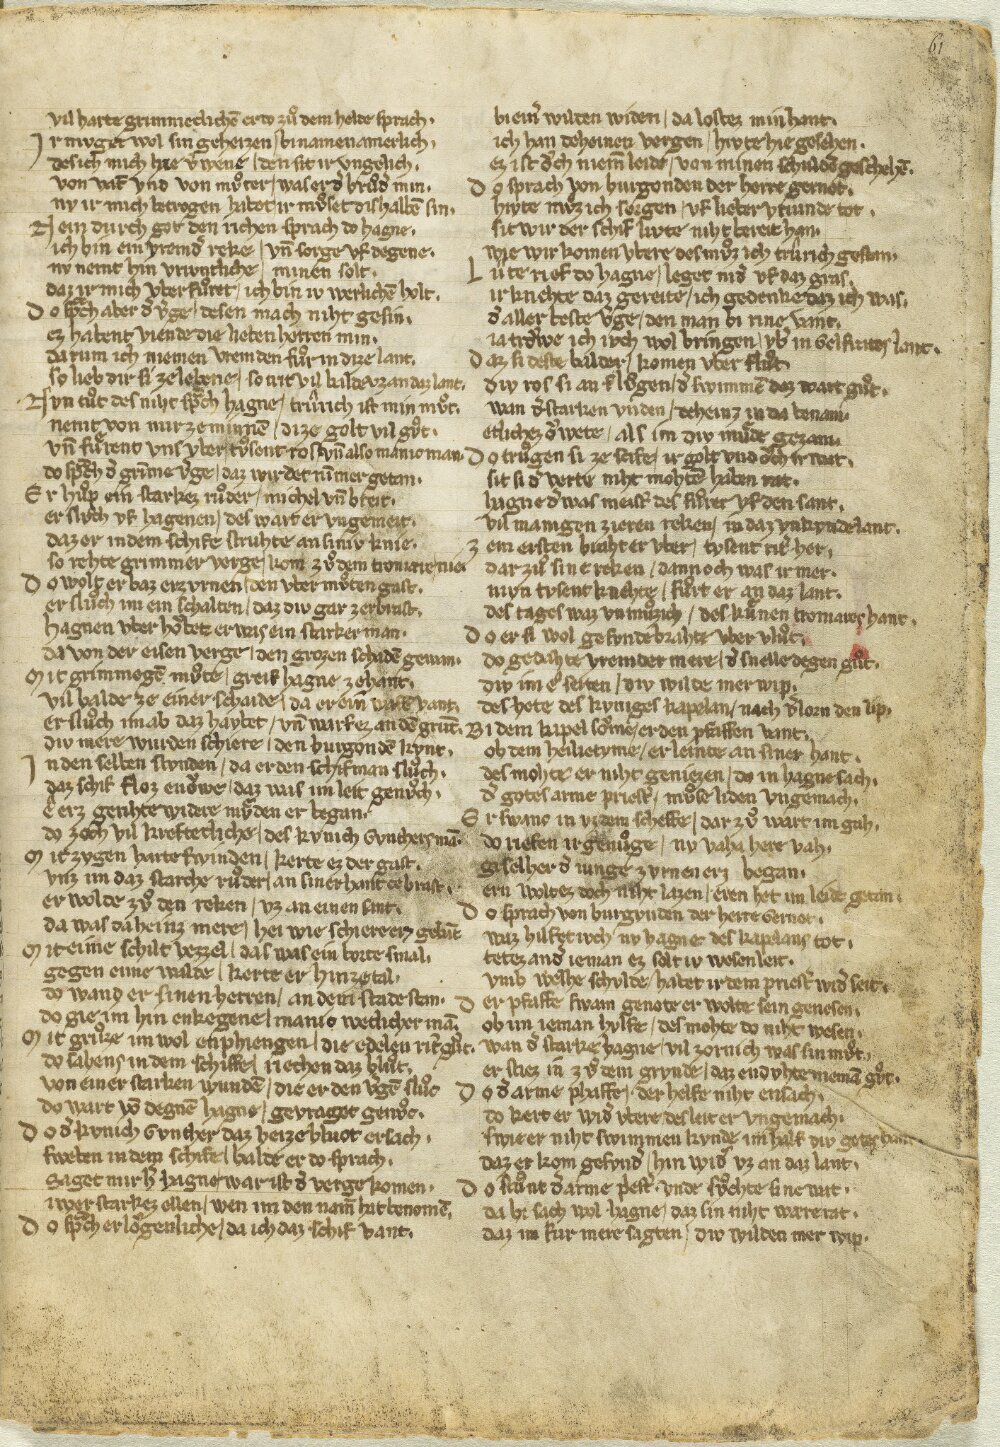 61
vil harte grimmeclichē er do zů dem helde sprach.
Ir mvget wol sin geheizen / binamen amerlich,
des ich mich hie v̓wene / den sit ir vngelich.
von vat̓ vnd von mv̊ter / was er d̓ brůd̓ min.
nv ir mich betrogen habet / ir mv̊set dishalbē sin.
Nein durch got den richen / sprach do hagne.
ich bin ein vremd̓ reke / vn̄ sorge vf degene.
nv nemt hin vriuntliche / minen solt.
daz ir mich vber fůret / ich bin iv werlichē holt.
Do sp̄ch aber d̓ v̓ge / desen mach niht gesin.
ez habent viende die lieben herren min.
darum ich niemen vremden fůr in dize lant.
so lieb dir si ze lebene / so trit vil balde vz an daz lant.
Nvn tůt des niht sp̄ch hagne / trůrich ist min mv̊t.
nemt von mir ze minnē / dize golt vil gv̊t.
vn̄ fůrent vns vber / tvsent ros vn̄ also manic man.
do sp̄ch d̓ gri̅me v̓ge / daz wirdet ni̅mer getan.
Er hůp ein starkez růder / michel vn̄ breit.
er slv̊ch vf hagenen / des wart er vngemeit.
daz er in dem schife struhte an siniv knie.
so rehte grimmer verge / kom zů dem tronaere nie.
Do wolt er baz erzvrnen / den vber mv̊ten gast.
er slůch im ein schalten / daz div gar zerbrast.
Hagnen vber hobet / er was ein starker man.
da von der eisen verge / den grozen schadē gewan.
Mit grimmegē mv̊te / greif hagne zehant.
vil balde ze einer schaide / da er ein wafē vant.
er slůch im ab daz havbet / vn̄ warf ez an dē grunt.
div mere wurden schiere / den burgondē kvnt.
In den selben stvnden / da er den schifman slůch.
daz schif floz enowe / daz was im leit genůch.
e erz gerihte widere mv̊den er began.
do zoch vil krefteclich̓e / des kvnich Gvnthers mā.
Mit zvgen harte swinden / kerte ez der gast.
vnz im daz starche růder / an siner hant ce brast.
er wolde zů den reken / vz an einen sant.
da was daheinz mere / hei wie schiere erz gebāt
Mit eime schilt vezzel / das was ein borte smal.
gegen eime walde / kerte er hinzetal.
do wand er sinen herren / an dem stade stan.
do gie im hin enkegene / manic wetlicher mā.
Mit grůze im wol enphiengen / die edelen rit̓ gůt.
do sahens in dem schiffe / riechen daz blůt.
von einer starken wundē / die er den v̓gē slůc
do wart vō degnē hagne / gevraget genůc.
Do d̓ kvnich Gvnther daz heize bluot ersach.
sweben in dem schife / balde er do sprach.
Saget mir h̓ hagne war ist d̓ verge komen.
iwer starkez ellen / wen im den nam̄ hat benomē,
Do sp̄ch er lōgenliche / da ich daz schif vant.
bi ein̓ wilden widen / da lostez min hant.
ich han deheinen vergen / hivte hie gesehen.
ez ist ōch niem̄ leide / von minen schuldē geschehē.
Do sprach von burgonden der herre gernot.
hivte mv̊z ich sorgen / vf lieber vrivnde tot.
sit wir der schif livte niht bereit han.
wie wir komen vbere des mv̊z ich trůrich gestan.
Lute rief do hagne / leget nid̓ vf daz gras.
ir knehte daz gereite / ich gedenke daz ich was.
d̓ aller beste v̓ge / den man bi rine vant.
ia trōwe ich ivch wol bringen / vb̓ in Gelfrates lant.
Daz si deste balder / komen vber flůt
div ros si an slůgen / d̓ swimmē daz wart gůt.
wan d̓ starken vnden / deheinz in da benam.
etlichez ōwete / als im div mv̊de gezam.
Do trůgen si ze schife / ir golt vnd ōch ir wat.
sit si d̓ verte niht mohtē haben rat.
hagne d̓ was meist̓ des fůret vf den sant.
vil manigen zieren reken / in daz vnkvnde lant.
Zem ersten braht er vber / tvsent rit̓ her,
dar zů sine reken / dannoch was ir mer.
nivn tvsent knehte / fůrt er an daz lant.
des tages waz vnmůzich / des kůnen tronaeres hant.
Do er si wol gesvnde brahte vber vlůt.
do gedahte vremder mere / d̓ snelle degen gůt.
div im e seiten / div wilde mer wip.
des hete des kvniges kapelan / nach v̓lorn den lip.
Bi dem kapel sōme / er den pfaffen vant.
ob dem heilictvme / er leinte an siner hant.
des mohte er niht geniezen / do in hagne sach.
d̓ gotes arme priest̓ / mv̊se liden vngemach.
Er swanc in vz dem scheffe / dar zů wart im gah.
do riefen ir genůge / nv vaha here vah.
giselher d̓ iunge zvrnen erz began.
ern woltez doch niht lazen / eren het im leide getan.
Do sprach von burgvnden der herre Gernot.
waz hilfet ivch nv hagne des kapelans tot.
tetez and̓ ieman ez solt iv wesen leit.
vmb welhe schvlde / habet ir dem priest̓ wid̓ seit.
Der pfaffe swam genote er wolte sein genesen.
ob im ieman hvlfe / des mohte do niht wesen.
wan d̓ starke hagne / vil zornich was sin mv̊t.
er stiez in zů dem grvnde / daz enduhte niemā gůt.
Do d̓ arme phaffe / der helfe niht ensach.
do kert er wid̓ vbere / des leit er vngemach.
swie er niht swimmen kvnde im half div gotes hant
daz er kom gesvnd̓ / hin wid̓ vz an daz lant.
Do stůnt d̓ arme p̓est̓ / vnde schv̊hte sine wat.
da bi sach wol hagne / daz sin niht wære rat.
daz im fur mere sagten / div wilden mer wip.